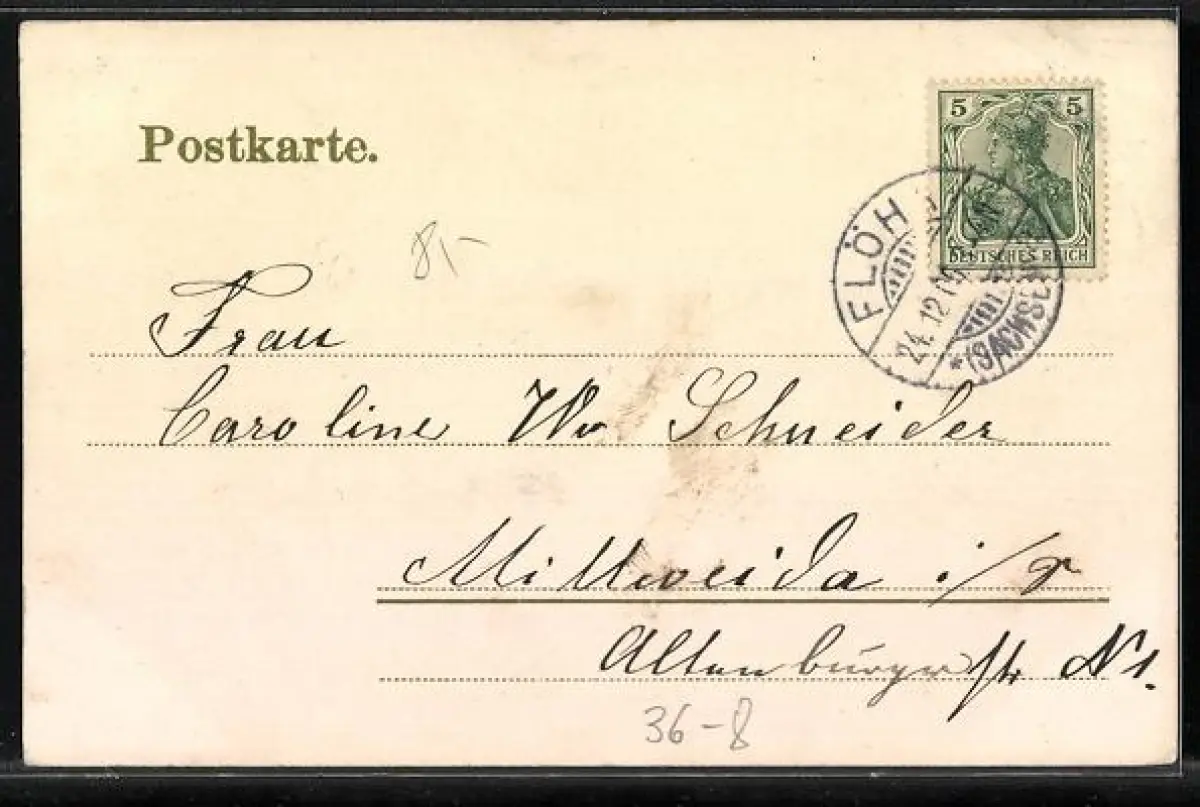 Postkarte.
5 5
DEUTSCHES REICH
FLÖHA
24.12.0
*(SACHSEN)
81-
Frau
Caroline Wv Schneider
Mittweida i/
Altenburgerstr N 1.
36-8